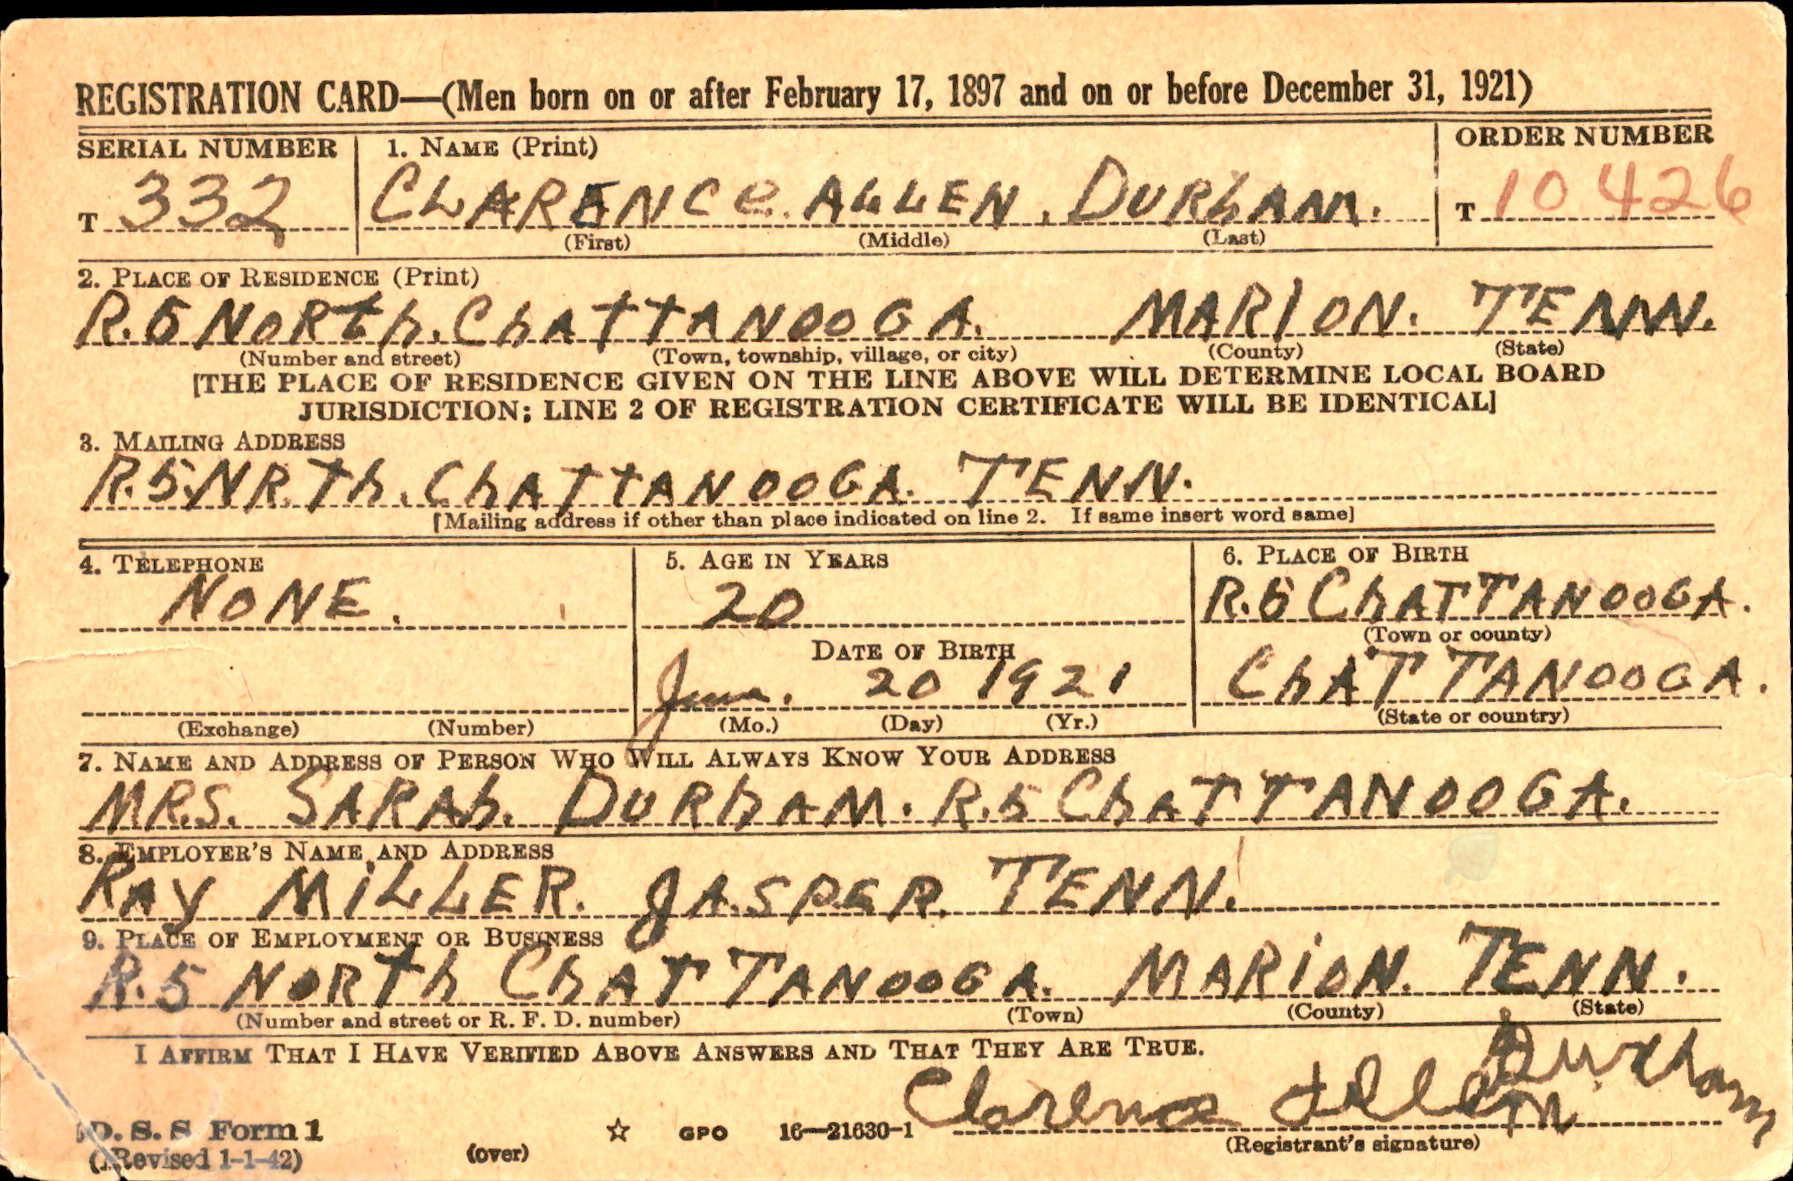 REGISTRATION CARD—(Men born on or after February 17, 1897 and on or before December 31, 1921)
SERIAL NUMBER 1. NAME (Print) ORDER NUMBER
T 332 CLARENCe. ALLEN. DURhAM. T 10426
(First) (Middle) (Last)
2. PLACE OF RESIDENCE (Print)
R.5 NORth. ChATTANOOGA. MARION. TENN.
(Number and street) (Town, township, village, or city) (County) (State)
[THE PLACE OF RESIDENCE GIVEN ON THE LINE ABOVE WILL DETERMINE LOCAL BOARD
JURISDICTION; LINE 2 OF REGISTRATION CERTIFICATE WILL BE IDENTICAL]
3. MAILING ADDRESS
R.5.NR.Th. ChATTANOOGA. TENN.
[Mailing address if other than place indicated on line 2. If same insert word same]
4. TELEPHONE 5. AGE IN YEARS 6. PLACE OF BIRTH
NONE. 20 R.5 ChATTANOOGA.
DATE OF BIRTH (Town or county)
June. 20 1921 ChATTANOOGA.
(Exchange) (Number) (Mo.) (Day) (Yr.) (State or country)
7. NAME AND ADDRESS OF PERSON WHO WILL ALWAYS KNOW YOUR ADDRESS
MRS. SARAh. DURhAM. R.5 ChATTANOOGA.
8. EMPLOYER'S NAME AND ADDRESS
RAy MiLLER. JASPER. TENN.
9. PLACE OF EMPLOYMENT OR BUSINESS
R.5 NORth ChATTANOOGA. MARiON. TENN.
(Number and street or R. F. D. number) (Town) (County) (State)
I AFFIRM THAT I HAVE VERIFIED ABOVE ANSWERS AND THAT THEY ARE TRUE.
Clarence Allen Durham
D. S. S. Form 1 ☆ GPO 16—21630-1 (Registrant's signature)
(Revised 1-1-42) (over)